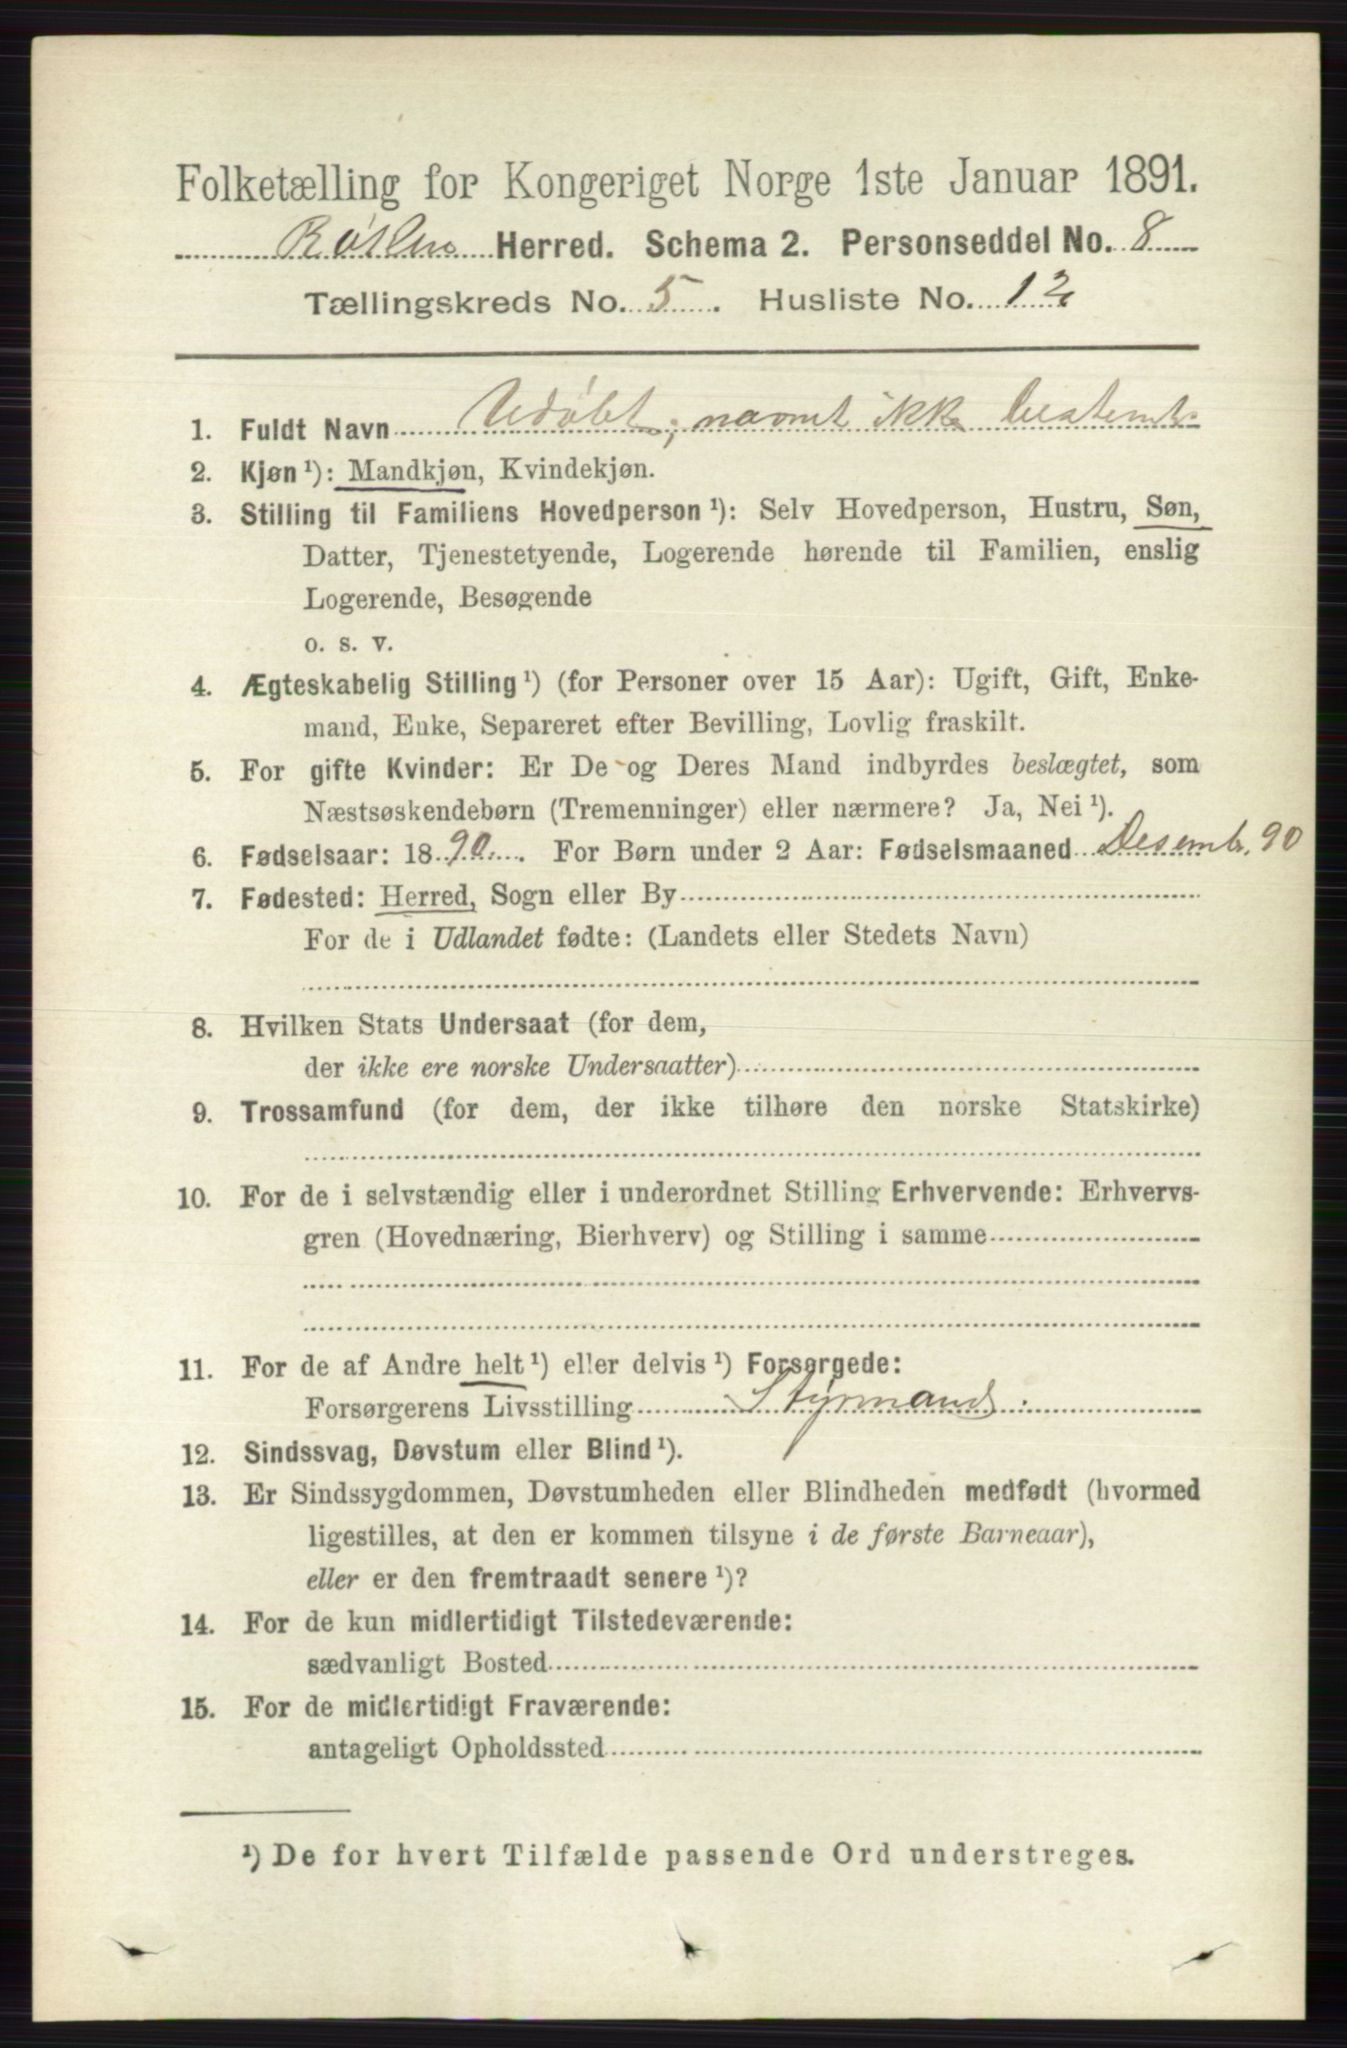 Folketælling for Kongeriget Norge 1ste Januar 1891.
Røken Herred. Schema 2. Personseddel No. 8
Tællingskreds No. 5. Husliste No. 12
1. Fuldt Navn Udøbt, navnet ikke bestemt
2. Kjøn ¹): Mandkjøn, Kvindekjøn.
3. Stilling til Familiens Hovedperson ¹): Selv Hovedperson, Hustru, Søn,
Datter, Tjenestetyende, Logerende hørende til Familien, enslig
Logerende, Besøgende
o. s. v.
4. Ægteskabelig Stilling ¹) (for Personer over 15 Aar): Ugift, Gift, Enke-
mand, Enke, Separeret efter Bevilling, Lovlig fraskilt.
5. For gifte Kvinder: Er De og Deres Mand indbyrdes beslægtet, som
Næstsøskendebørn (Tremenninger) eller nærmere? Ja, Nei ¹).
6. Fødselsaar: 1890. For Børn under 2 Aar: Fødselsmaaned Desemb. 90
7. Fødested: Herred, Sogn eller By
For de i Udlandet fødte: (Landets eller Stedets Navn)
8. Hvilken Stats Undersaat (for dem,
der ikke ere norske Undersaatter)
9. Trossamfund (for dem, der ikke tilhøre den norske Statskirke)
10. For de i selvstændig eller i underordnet Stilling Erhvervende: Erhvervs-
gren (Hovednæring, Bierhverv) og Stilling i samme
11. For de af Andre helt ¹) eller delvis ¹) Forsørgede:
Forsørgerens Livsstilling Styrmand.
12. Sindssvag, Døvstum eller Blind ¹).
13. Er Sindssygdommen, Døvstumheden eller Blindheden medfødt (hvormed
ligestilles, at den er kommen tilsyne i de første Barneaar),
eller er den fremtraadt senere ¹)?
14. For de kun midlertidigt Tilstedeværende:
sædvanligt Bosted
15. For de midlertidigt Fraværende:
antageligt Opholdssted
¹) De for hvert Tilfælde passende Ord understreges.